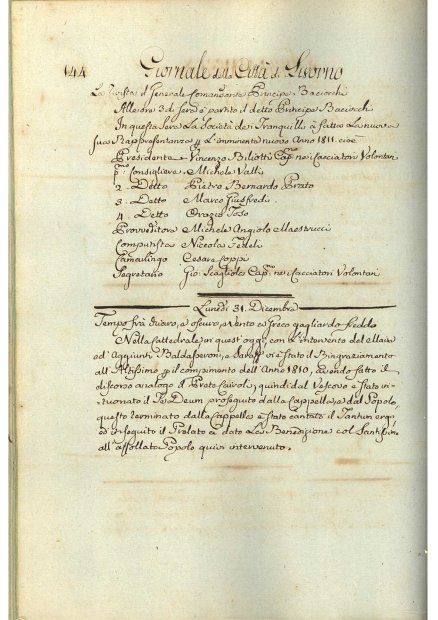 144 Giornale della Città di Livorno
La Rivista il Generale Comandante Principe Baciocchi
Alle ore 3 di sera è partito il detto Principe Baciocchi
In questa sera La Società de Tranquilli à fatta La nuova
sua Rappresentanza p l'imminente nuovo Anno 1811. cioè
Presidente Vincenzo Biliotti Cap.º ne Cacciatori Volontari
p.mo Consigliere Michele Valli
2. Detto Pietro Bernardo Prato
3. Detto Marco Giusfredi
4. Detto Orazio Toso
Provveditore Michele Angiolo Maestrucci
Computista Niccola Fedeli
Camarlingo Cesare Coppi
Segretario Gio: Scagliola Cap.º ne Cacciatori Volontari
Lunedì 31. Dicembre
Tempo frà chiaro, e oscuro, e vento a Greco gagliardo freddo
Nella Cattedrale in quest'oggi, con L'intervento del Maire
ed Aggiunti Baldasseroni, e vi è stato il Ringraziamento
all'Altissimo p il compimento dell'Anno 1810, avendo fatto il
discorso analogo il Prete quindi dal Vescovo è stato in-
tuonato il Te Deum proseguito dalla Cappella, e dal Popolo,
questo terminato dalla Cappella è stato cantato il Tantum ergo,
ed in seguito il Prelato à dato La Benedizione col Santissimo
all'affollato Popolo quivi intervenuto.